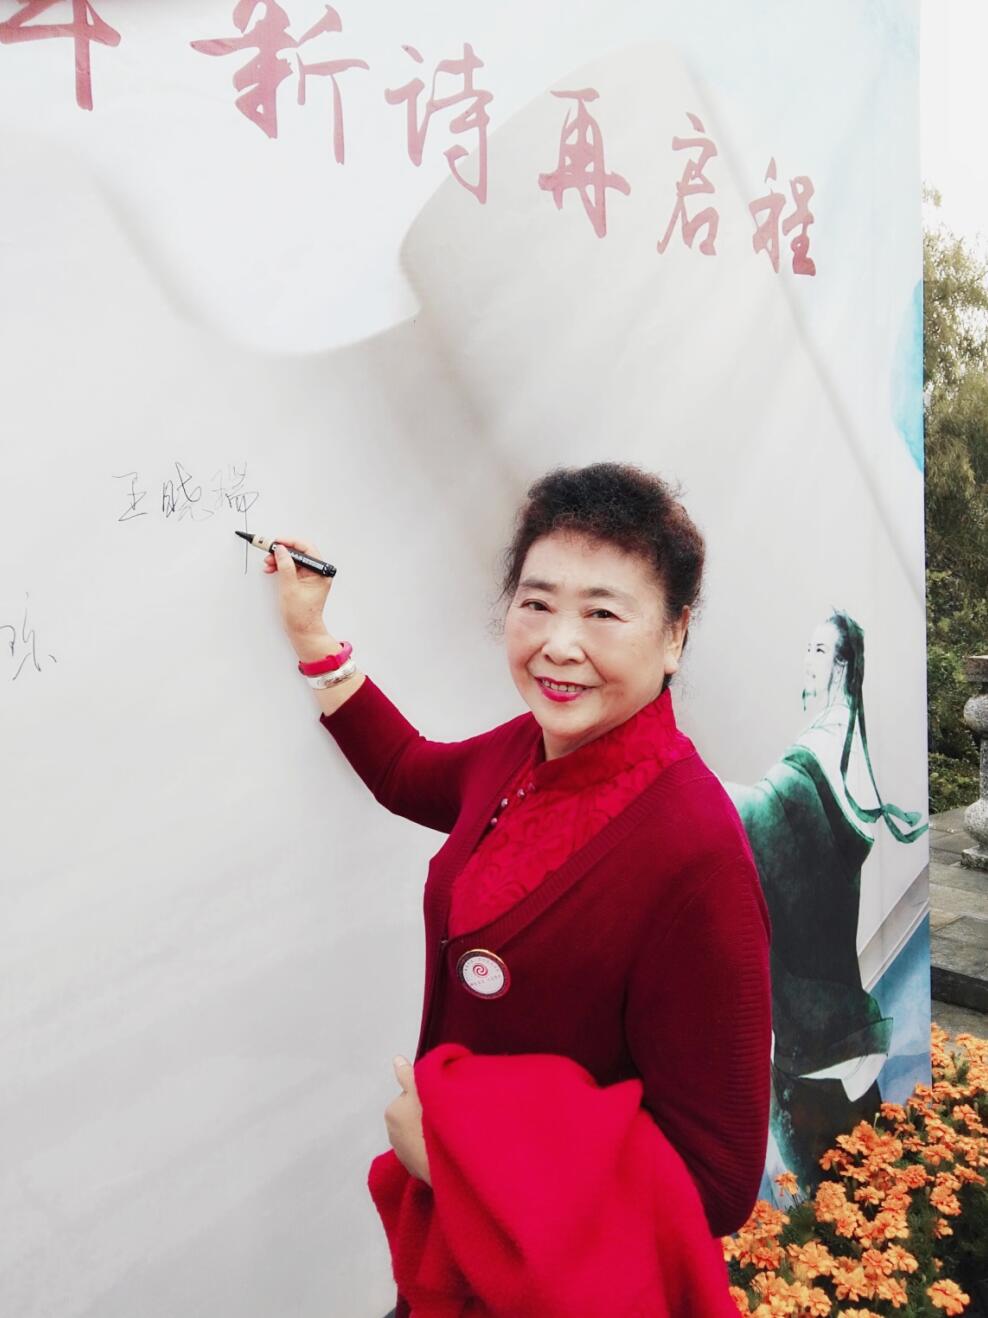 年新诗再启程
王晓瑞